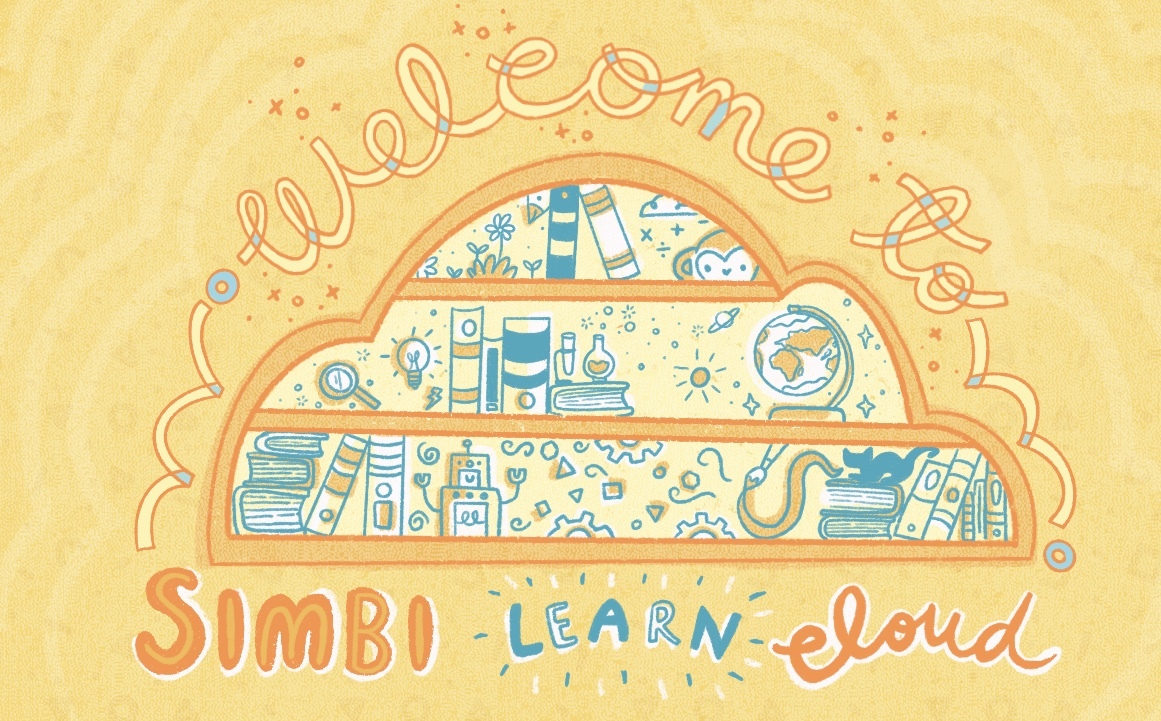 welcome to
SIMBI LEARN cloud